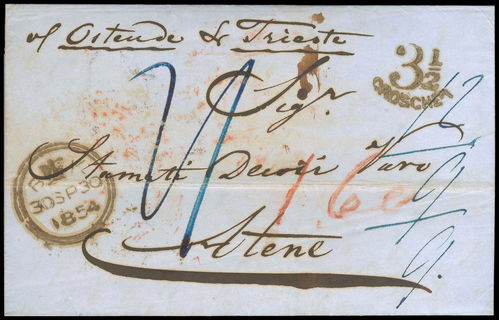 of Ostende & Trieste
3½
GROSCHEN
Sigr
Stamati Decozi Vuro
Atene
30SP30
1854
160